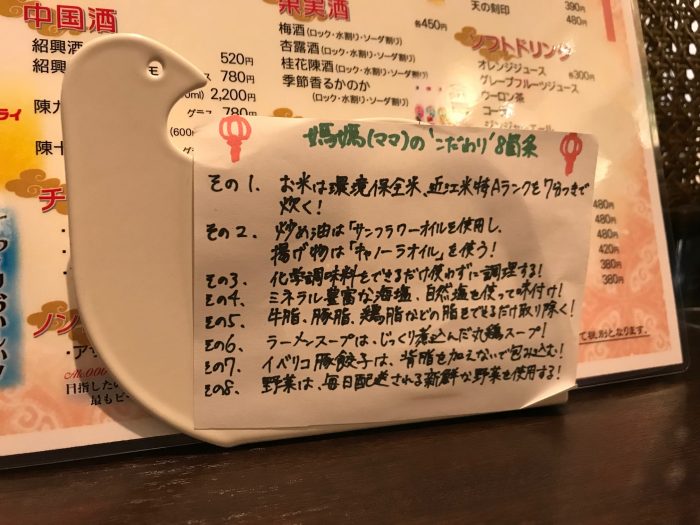 中国酒
紹興酒
紹興
520円
グラス 780円
2,200円
陳九
グラス 780円
陳十
果実酒
梅酒(ロック・水割り・ソーダ割り)
各450円
杏露酒(ロック・水割り・ソーダ割り)
桂花陳酒(ロック・水割り・ソーダ割り)
季節香るかのか
(ロック・水割り・ソーダ割り)
天の刻印
390円
480円
ソフトドリンク
オレンジジュース
各300円
グレープフルーツジュース
ウーロン茶
コー
ライ
モ
媽媽(ママ)の"こだわり"8箇条
その1. お米は環境保全米、近江米特Aランクを7分つきで
炊く!
その2. 炒め油は「サンフラワーオイルを使用し、
揚げ物は「キャノーラオイル」を使う!
その3. 化学調味料をできるだけ使わずに調理する!
その4. ミネラル豊富な海塩、自然塩を使って味付け!
その5. 牛脂、豚脂、鶏脂などの脂をできるだけ取り除く!
その6. ラーメンスープは、じっくり煮込んだ丸鶏スープ!
その7. イベリコ豚餃子は、背脂を加えないで包み込む!
その8. 野菜は、毎日配送される新鮮な野菜を使用する!
480円
480円
420円
380円
380円
チ
ノン
・ア
目指したい
最もビー
て税別となります。